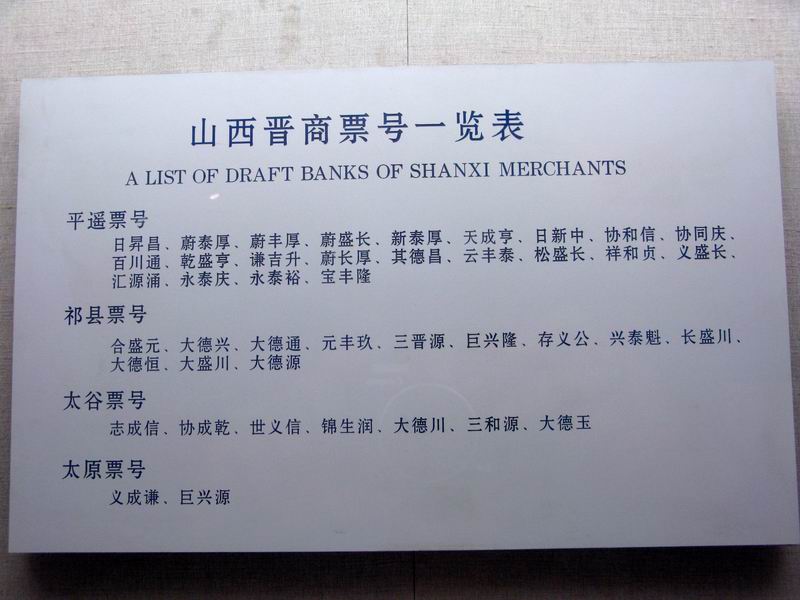 山西晋商票号一览表
A LIST OF DRAFT BANKS OF SHANXI MERCHANTS
平遥票号
日昇昌、蔚泰厚、蔚丰厚、蔚盛长、新泰厚、天成亨、日新中、协和信、协同庆、
百川通、乾盛亨、谦吉升、蔚长厚、其德昌、云丰泰、松盛长、祥和贞、义盛长、
汇源涌、永泰庆、永泰裕、宝丰隆
祁县票号
合盛元、大德兴、大德通、元丰玖、三晋源、巨兴隆、存义公、兴泰魁、长盛川、
大德恒、大盛川、大德源
太谷票号
志成信、协成乾、世义信、锦生润、大德川、三和源、大德玉
太原票号
义成谦、巨兴源